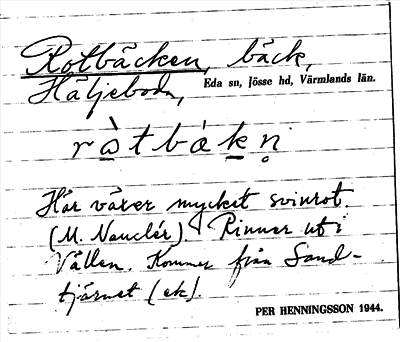 Rotbäcken, bäck,
Häljeboda, Eda sn, Jösse hd, Värmlands län.
Här växer mycket svinrot.
(M. Nauclér). Rinner ut i
Vållen. Kommer från Sand-
tjärnet (ek).
PER HENNINGSSON 1944.